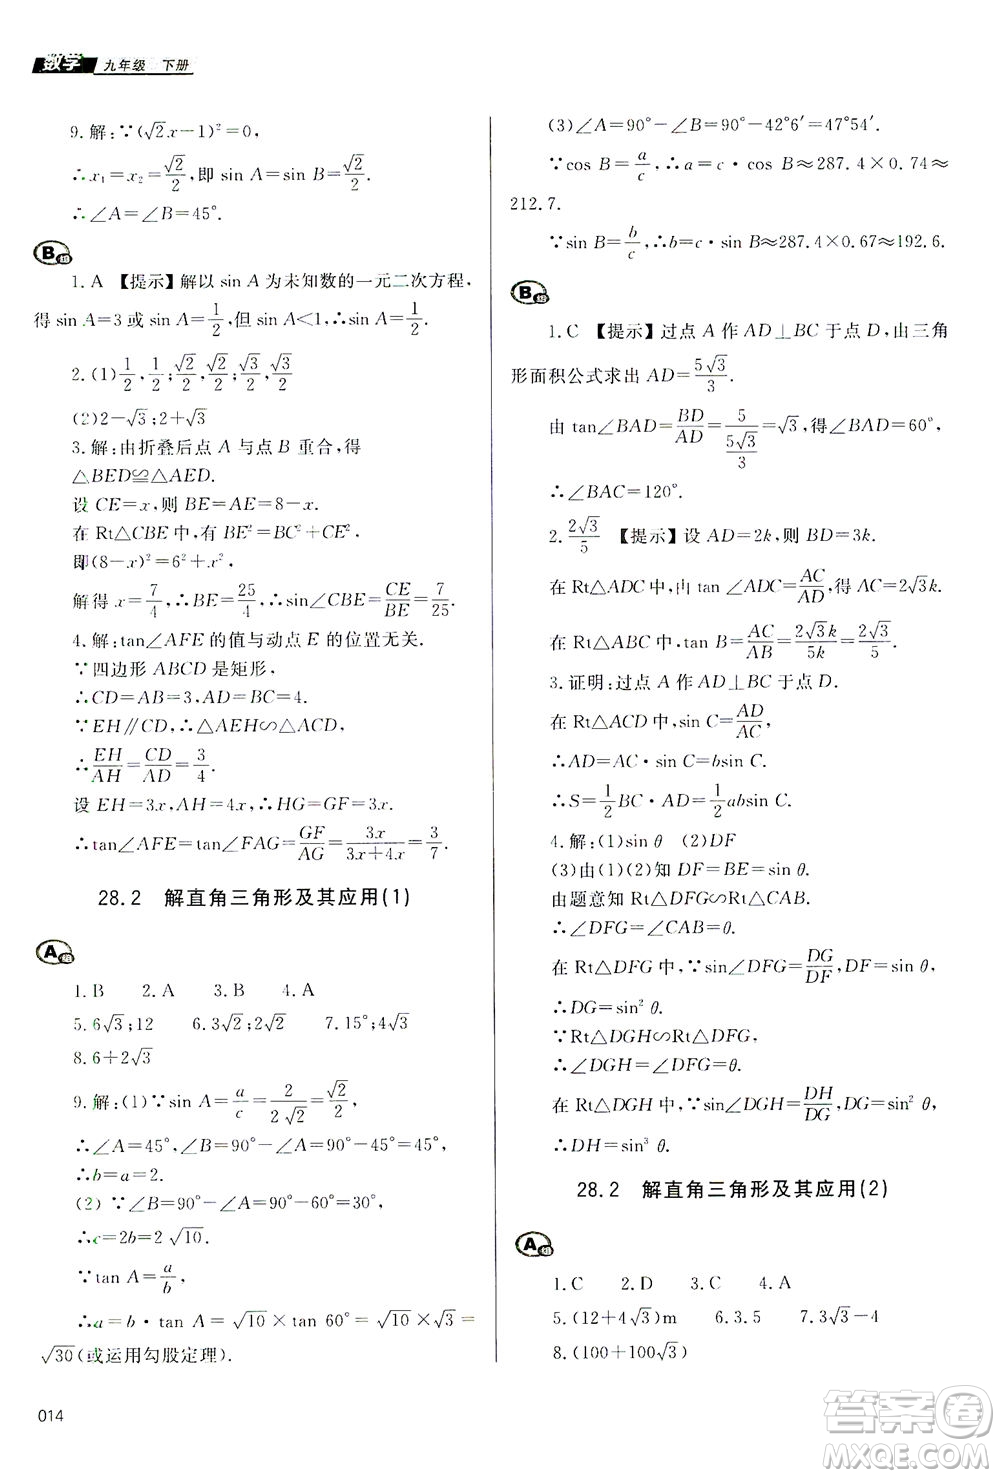 数学 九年级 下册
9. 解:∵(√2x−1)²=0,
∴x₁=x₂=√2/2,即 sin A=sin B=√2/2.
∴∠A=∠B=45°.
B组
1. A 【提示】解以 sin A 为未知数的一元二次方程,
得 sin A=3 或 sin A=1/2,但 sin A<1,∴sin A=1/2.
2. (1)1/2,1/2;√2/2,√2/2;√3/2,√3/2
(2)2−√3;2+√3
3. 解:由折叠后点 A 与点 B 重合,得
△BED≌△AED.
设 CE=x,则 BE=AE=8−x.
在 Rt△CBE 中,有 BE²=BC²+CE²
即(8−x)²=6²+x².
解得 x=7/4,∴BE=25/4,∴sin∠CBE=CE/BE=7/25.
4. 解:tan∠AFE 的值与动点 E 的位置无关.
∵四边形 ABCD 是矩形,
∴CD=AB=3,AD=BC=4.
∵EH∥CD,∴△AEH∽△ACD.
∴EH/AH=CD/AD=3/4
设 EH=3x,AH=4x,∴HG=GF=3x.
∴tan∠AFE=tan∠FAG=GF/AG=3x/(3x+4x)=3/7
28.2 解直角三角形及其应用(1)
A组
1. B 2. A 3. B 4. A
5. 6√3;12 6. 3√2;2√2 7. 15°;4√3
8. 6+2√3
9. 解:(1)∵sin A=a/c=2/(2√2)=√2/2,
∴∠A=45°,∠B=90°−∠A=90°−45°=45°,
∴b=a=2.
(2) ∵∠B=90°−∠A=90°−60°=30°,
∴c=2b=2√10.
∵tan A=a/b,
∴a=b·tan A=√10×tan 60°=√10×√3=
√30(或运用勾股定理).
014
(3)∠A=90°−∠B=90°−42°6′=47°54′.
∵cos B=a/c,∴a=c·cos B≈287.4×0.74≈
212.7.
∵sin B=b/c,∴b=c·sin B≈287.4×0.67≈192.6.
B组
1. C 【提示】过点 A 作 AD⊥BC 于点 D,由三角
形面积公式求出 AD=5√3/3.
由 tan∠BAD=BD/AD=5/(5√3/3)=√3,得∠BAD=60°,
∴∠BAC=120°.
2. 2√3/5 【提示】设 AD=2k,则 DB=3k.
在 Rt△ADC 中,由 tan ∠ADC=AC/AD,得 AC=2√3k.
在 Rt△ABC 中,tan B=AC/AB=2√3k/5k=2√3/5.
3. 证明:过点 A 作 AD⊥BC 于点 D.
在 Rt△ACD 中,sin C=AD/AC,
∴AD=AC·sin C=bsin C.
∴S=1/2BC·AD=1/2absin C.
4. 解:(1)sin θ (2)DF
(3)由(1)(2)知 DF=BE=sin θ.
由题意知 Rt△DFG∽Rt△CAB.
∴∠DFG=∠CAB=θ.
在 Rt△DFG 中,∵sin∠DFG=DG/DF=sin θ,
∴DG=sin² θ.
∵Rt△DGH∽Rt△DFG.
∴∠DGH=∠DFG=θ.
在 Rt△DGH 中,∵sin∠DGH=DH/DG=sin θ,
∴DH=sin³ θ.
28.2 解直角三角形及其应用(2)
A组
1. C 2. D 3. C 4. A
5. (12+4√3)m 6. 3.5 7. 3√3−4
8. (100+100√3)
答案圈
MXQE.COM